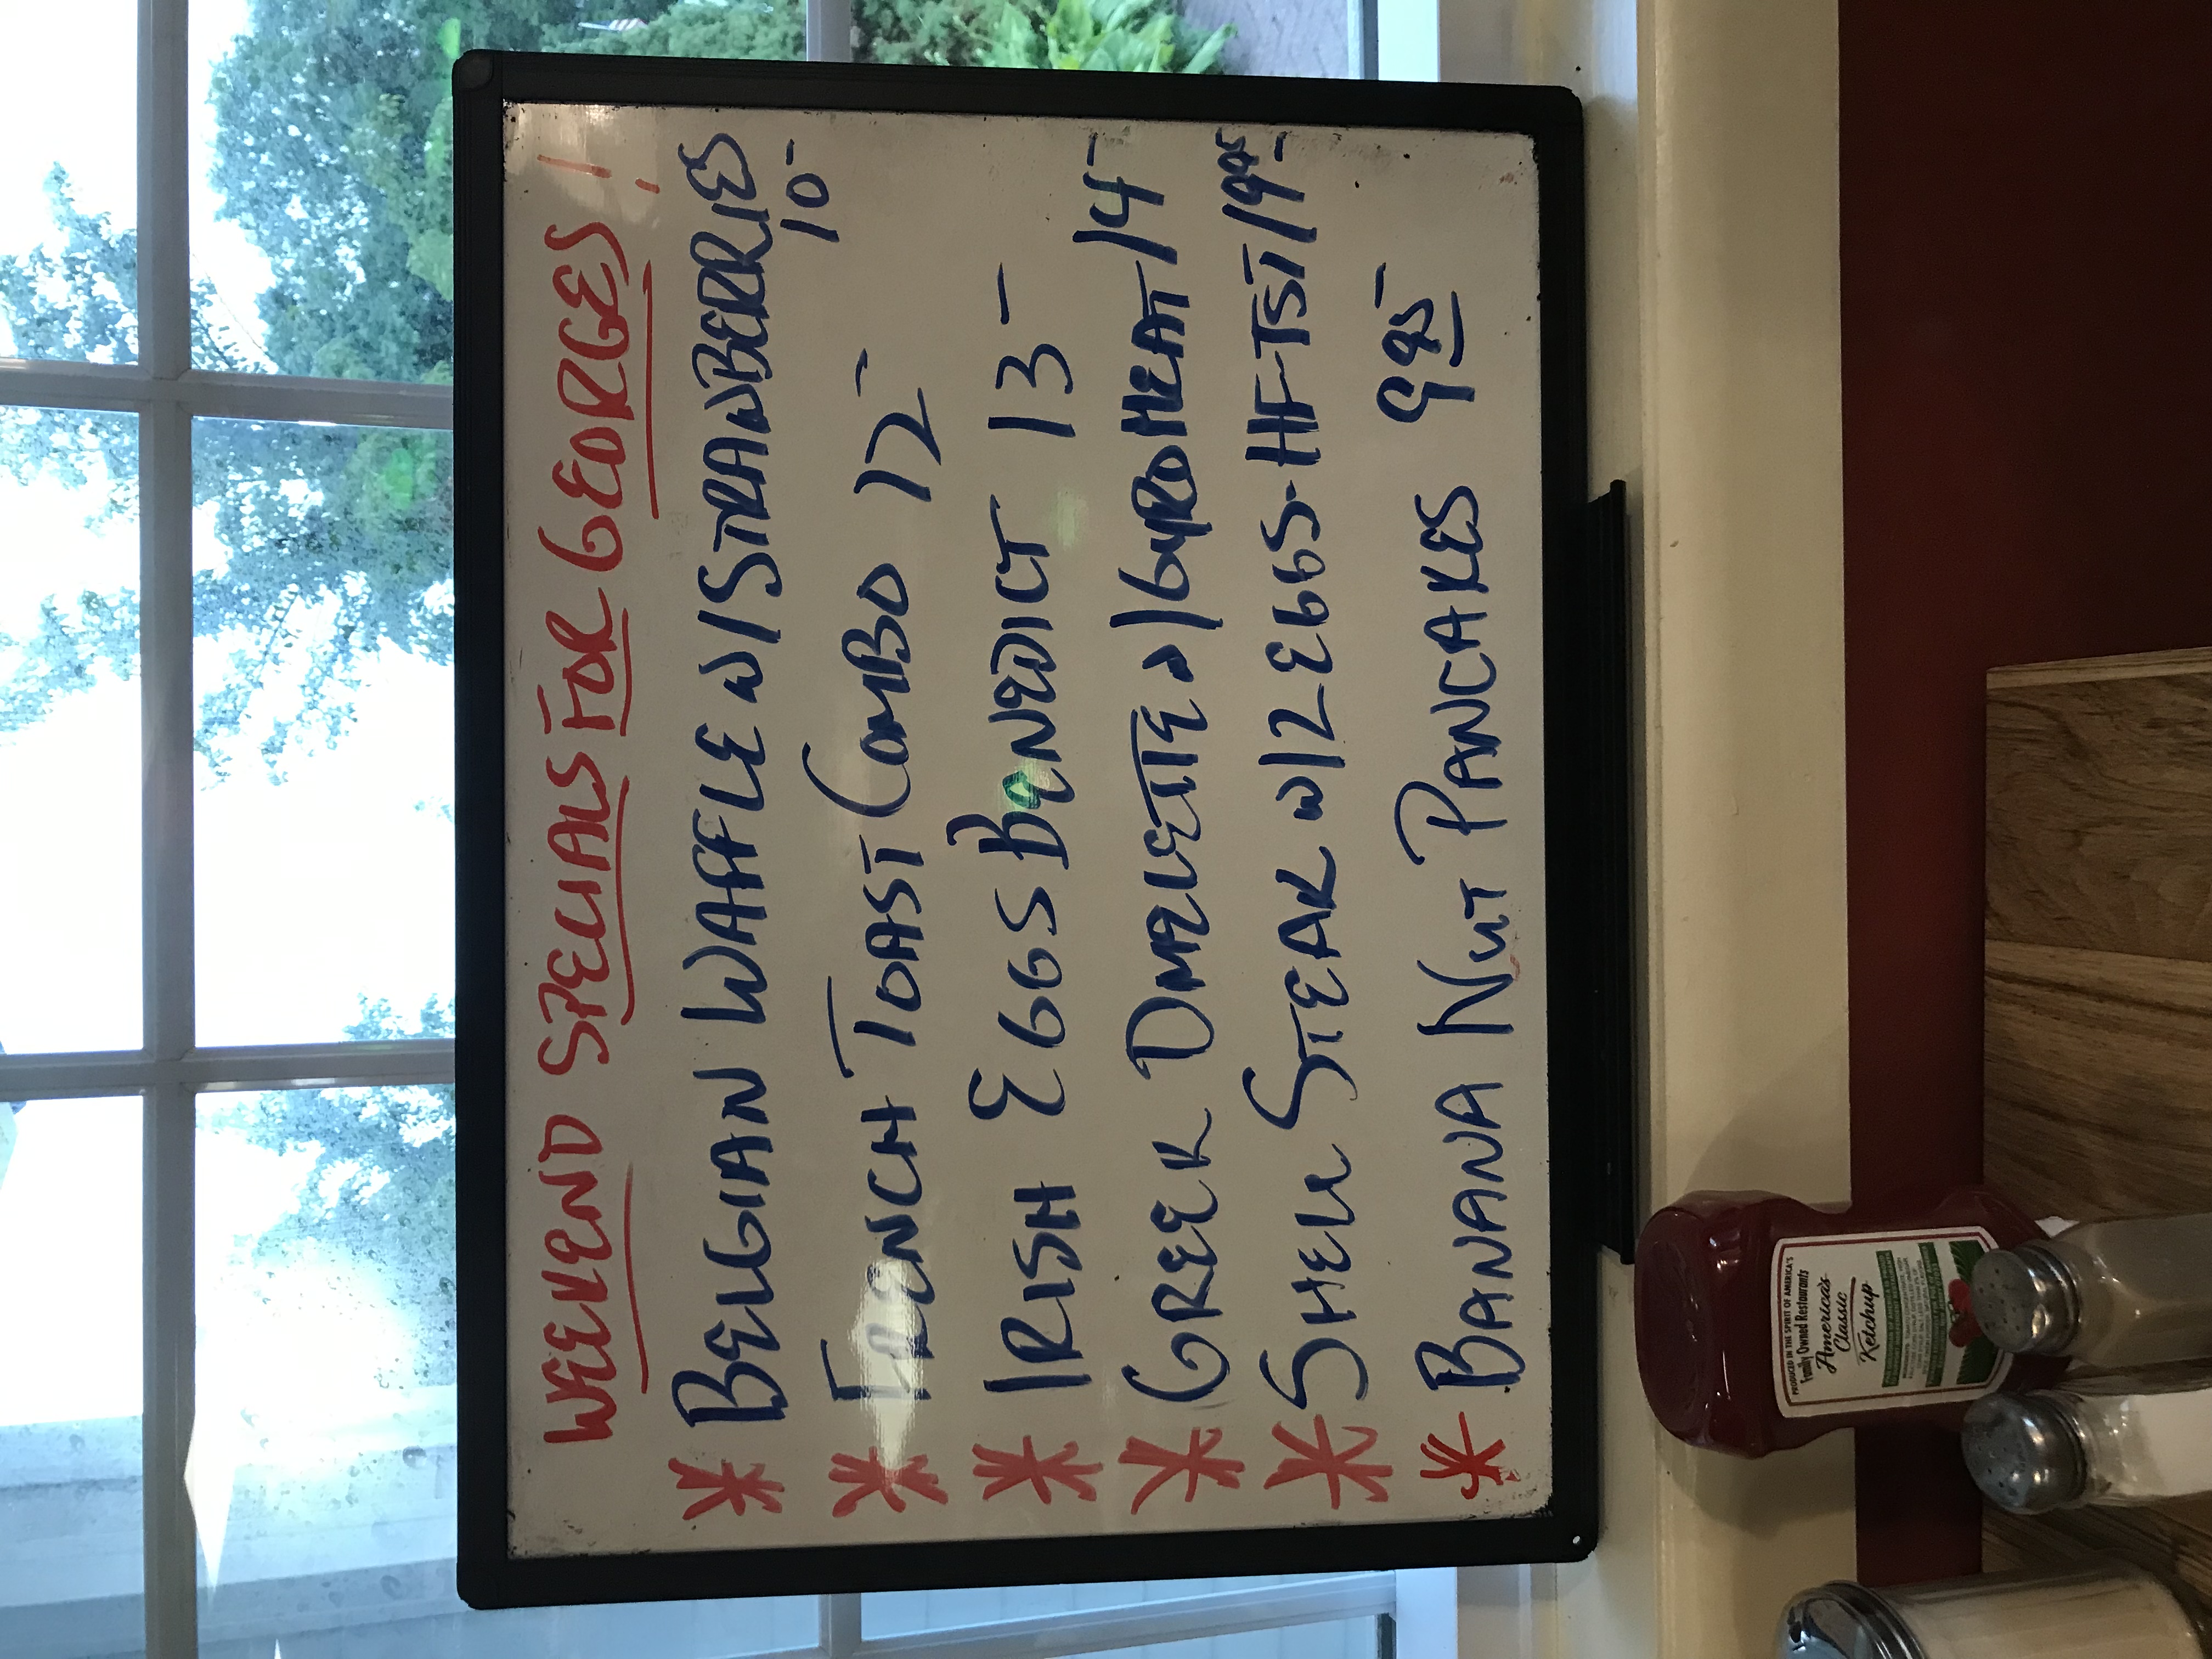 WEEKEND SPECIALS FOR GEORGES!
* BELGIAN WAFFLE w/STRAWBERRIES
10-
* FRENCH TOAST COMBO 12-
* IRISH EGGS BENEDICT 13-
* GREEK OMELETTE w/GYRO MEAT/14-
* SHELL STEAK w/2 EGGS-HF-TST/19.95-
* BANANA NUT PANCAKES 9.95-
PRODUCED IN THE SPIRIT OF AMERICA'S
Family Owned Restaurants
America's
Classic
Ketchup